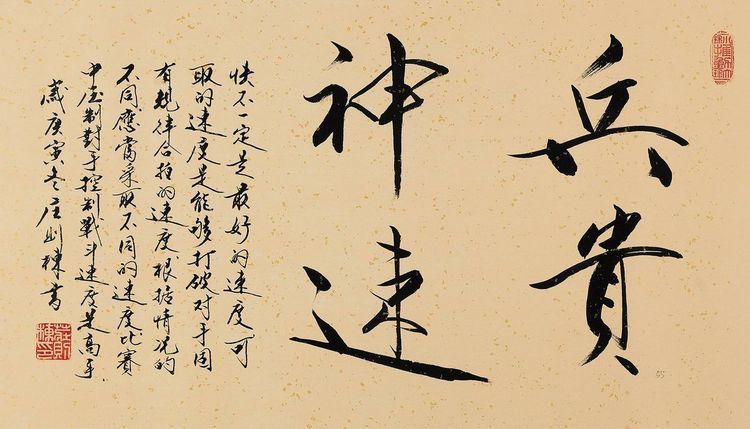 兵貴
神速
快不一定是最好的速度可
取的速度是能够打破对手固
有規律合拍的速度根据情况的
不同應當采取不同的速度比賽
中压制對手控制戰斗速度是高手
歲庚寅冬庄则棟書
莊則棟印